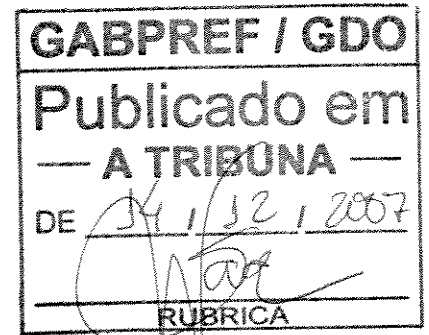 GABPREF / GDO
Publicado em
— A TRIBUNA —
DE 14 / 12 / 2007
RUBRICA